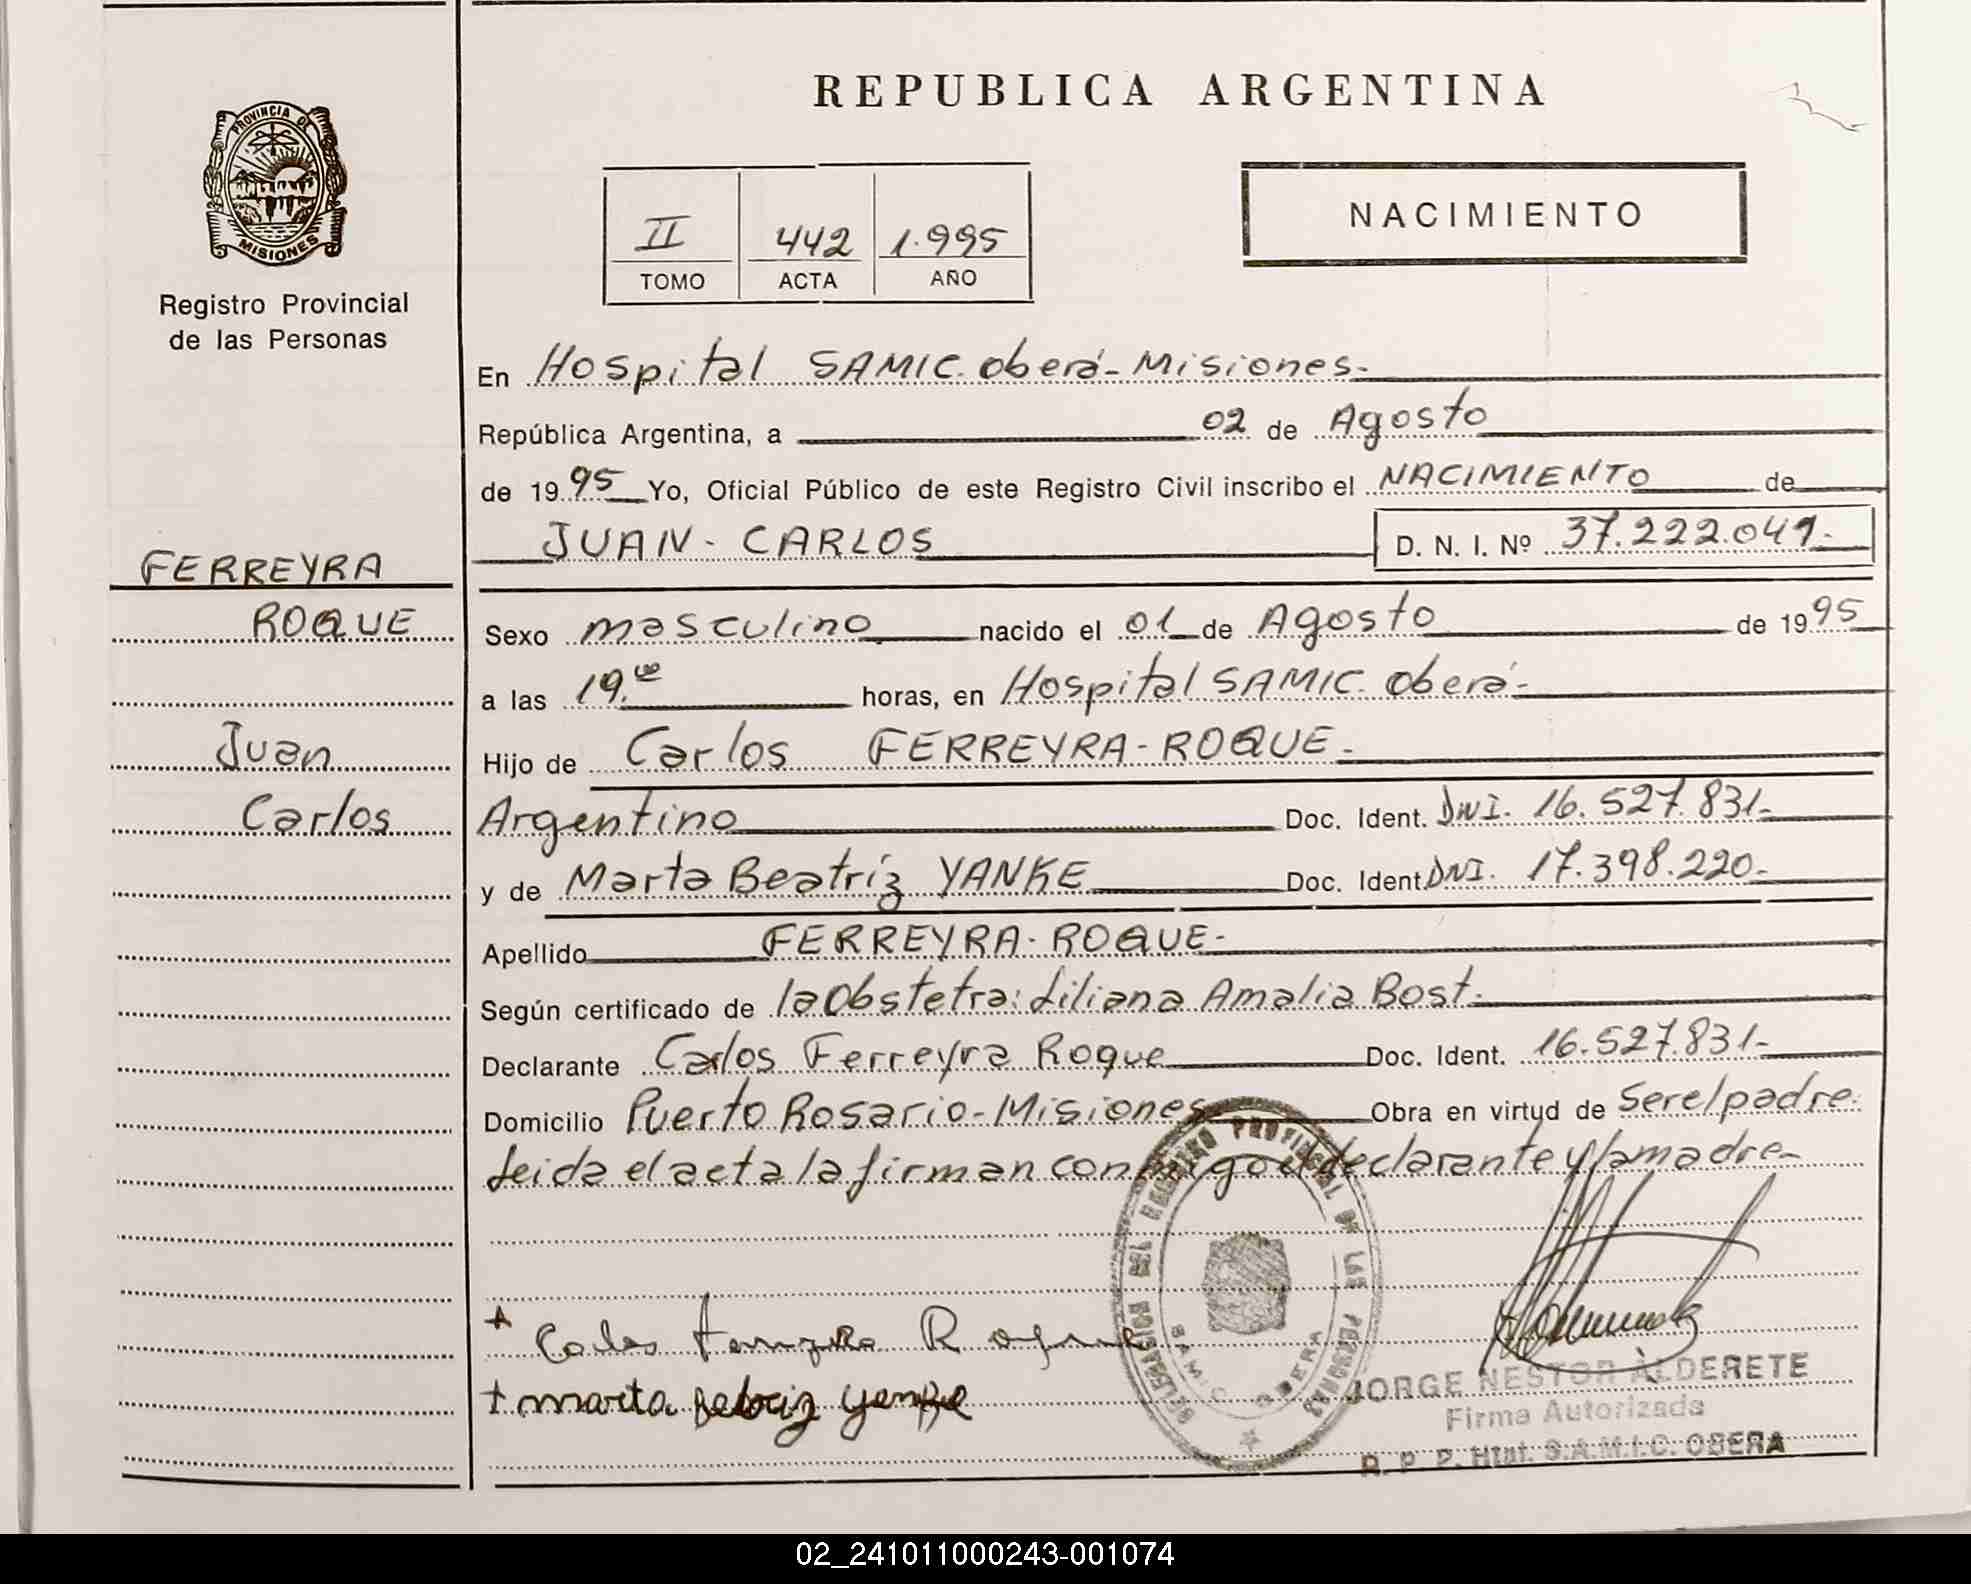 REPUBLICA ARGENTINA
PROVINCIA DE
MISIONES
Registro Provincial
de las Personas
NACIMIENTO
II 442 1.995
TOMO ACTA AÑO
En Hospital SAMIC. Oberá - Misiones.-
República Argentina, a 02 de Agosto
de 1995 Yo, Oficial Público de este Registro Civil inscribo el NACIMIENTO de
JUAN - CARLOS D. N. I. Nº 37.222.041.-
FERREYRA
ROQUE
Juan
Carlos
Sexo masculino nacido el 01 de Agosto de 1995
a las 19.00 horas, en Hospital SAMIC. Oberá.-
Hijo de Carlos FERREYRA - ROQUE.-
Argentino Doc. Ident. DNI. 16.527.831.-
y de Marta Beatríz YANKE Doc. Ident. DNI. 17.398.220.-
Apellido FERREYRA - ROQUE.-
Según certificado de la Obstetra: Liliana Amalia Bost.
Declarante Carlos Ferreyra Roque Doc. Ident. 16.527.831.-
Domicilio Puerto Rosario - Misiones Obra en virtud de Ser el padre.
Leida el acta la firman conmigo el declarante y la madre.-
Carlos Ferreyra Roque
marta beatriz yanke
DELEGACION DEL REGISTRO PROVINCIAL DE LAS PERSONAS
SAMIC OBERA
JORGE NESTOR ALDERETE
Firma Autorizada
R. P. P. Htal. S.A.M.I.C. OBERA
02_241011000243-001074